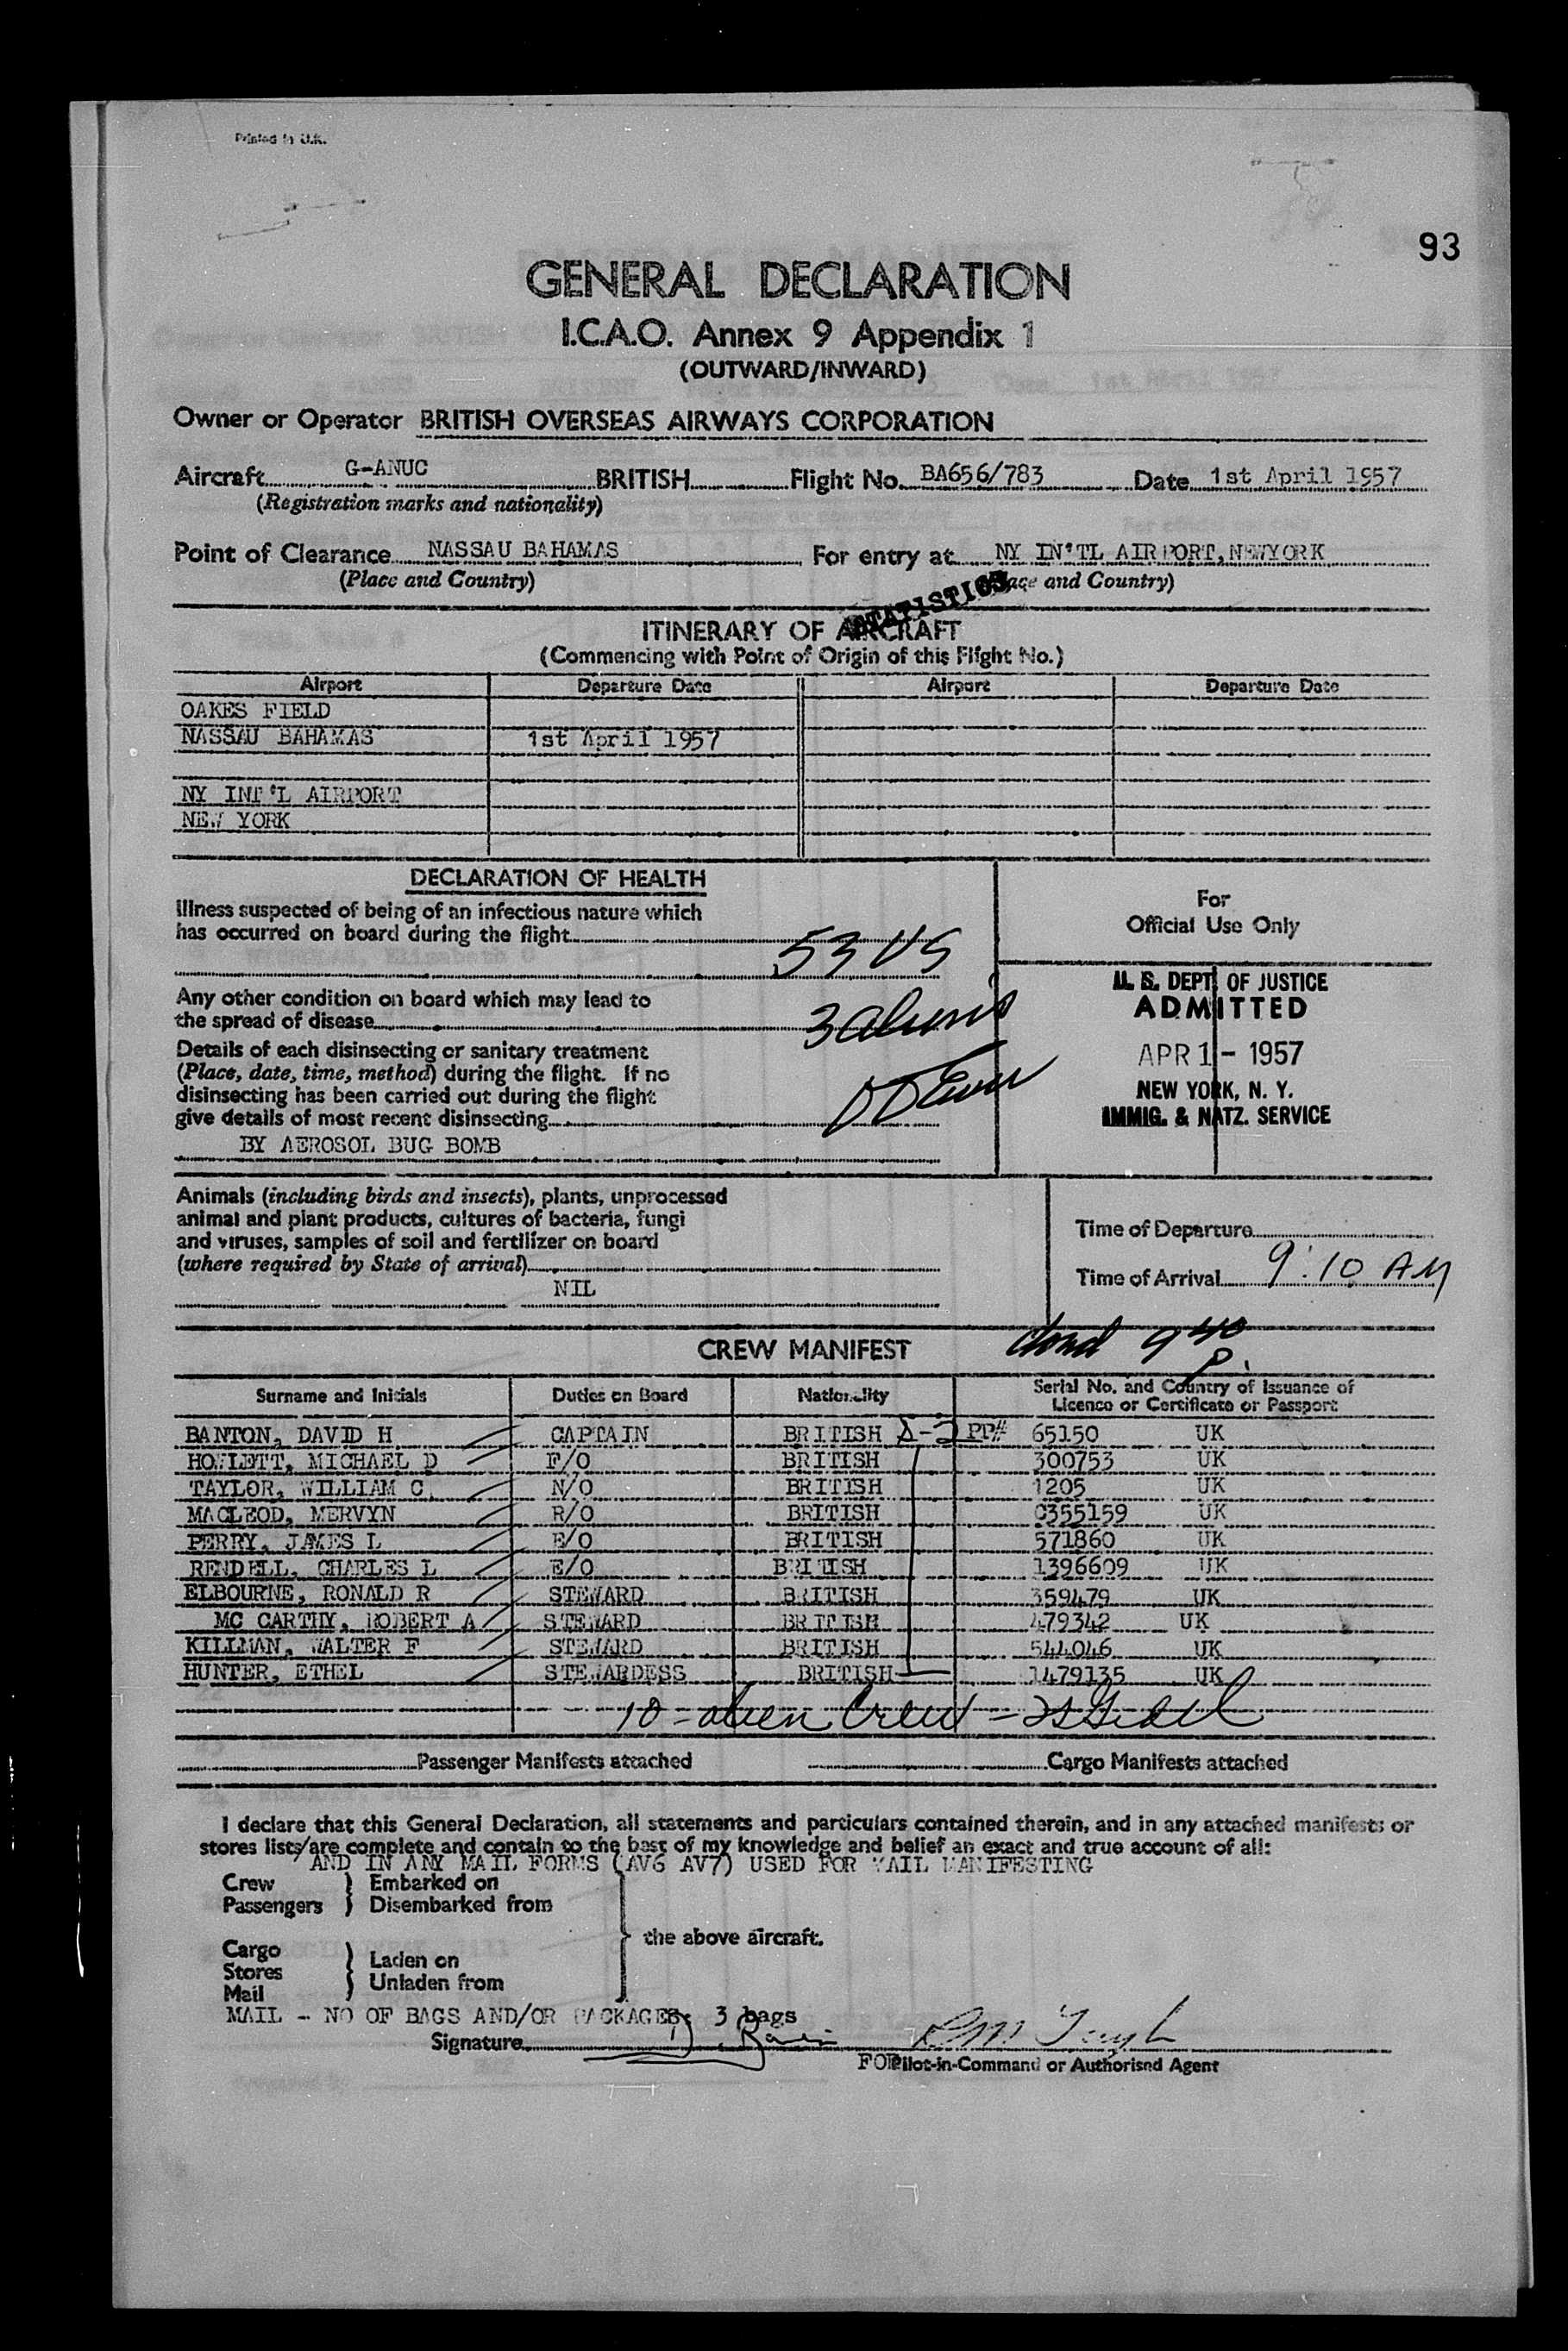 Printed in U.K.
93
GENERAL DECLARATION
I.C.A.O. Annex 9 Appendix 1
(OUTWARD/INWARD)
Owner or Operator BRITISH OVERSEAS AIRWAYS CORPORATION
Aircraft G-ANUC BRITISH Flight No. BA656/783 Date 1st April 1957
(Registration marks and nationality)
Point of Clearance NASSAU BAHAMAS For entry at NY IN'TL AIRPORT, NEWYORK
(Place and Country) and Country)
STATISTICS
ITINERARY OF AIRCRAFT
(Commencing with Point of Origin of this Flight No.)
Airport Departure Date Airport Departure Date
OAKES FIELD
NASSAU BAHAMAS 1st April 1957
NY INT'L AIRPORT
NEW YORK
DECLARATION OF HEALTH
Illness suspected of being of an infectious nature which
has occurred on board during the flight
53 US
Any other condition on board which may lead to
the spread of disease
3 aliens
Details of each disinsecting or sanitary treatment
(Place, date, time, method) during the flight. If no
disinsecting has been carried out during the flight
give details of most recent disinsecting
BY AEROSOL BUG BOMB
For
Official Use Only
U. S. DEPT. OF JUSTICE
ADMITTED
APR 1 - 1957
NEW YORK, N. Y.
IMMIG. & NATZ. SERVICE
Animals (including birds and insects), plants, unprocessed
animal and plant products, cultures of bacteria, fungi
and viruses, samples of soil and fertilizer on board
(where required by State of arrival)
NIL
Time of Departure
Time of Arrival 9:10 AM
9 40
CREW MANIFEST
Surname and Initials Duties on Board Nationality Serial No. and Country of Issuance of
Licence or Certificate or Passport
BANTON, DAVID H CAPTAIN BRITISH D-2 PP# 65150 UK
HOWLETT, MICHAEL D F/O BRITISH 300753 UK
TAYLOR, WILLIAM C. N/O BRITISH 1205 UK
MACLEOD, MERVYN R/O BRITISH C355159 UK
PERRY, JAMES L E/O BRITISH 571860 UK
RENDELL, CHARLES L E/O BRITISH 1396609 UK
ELBOURNE, RONALD R STEWARD BRITISH 359479 UK
MC CARTHY, ROBERT A STEWARD BRITISH 479342 UK
KILLMAN, WALTER F STEWARD BRITISH 544046 UK
HUNTER, ETHEL STEWARDESS BRITISH 1479135 UK
10 - alien Crew -
Passenger Manifests attached Cargo Manifests attached
I declare that this General Declaration, all statements and particulars contained therein, and in any attached manifests or
stores lists/are complete and contain to the best of my knowledge and belief an exact and true account of all:
AND IN ANY MAIL FORMS (AV6 AV7) USED FOR MAIL MANIFESTING
Crew } Embarked on
Passengers } Disembarked from
the above aircraft.
Cargo
Stores } Laden on
Mail } Unladen from
MAIL - NO OF BAGS AND/OR PACKAGES: 3 bags
Signature
FOR Pilot-in-Command or Authorised Agent